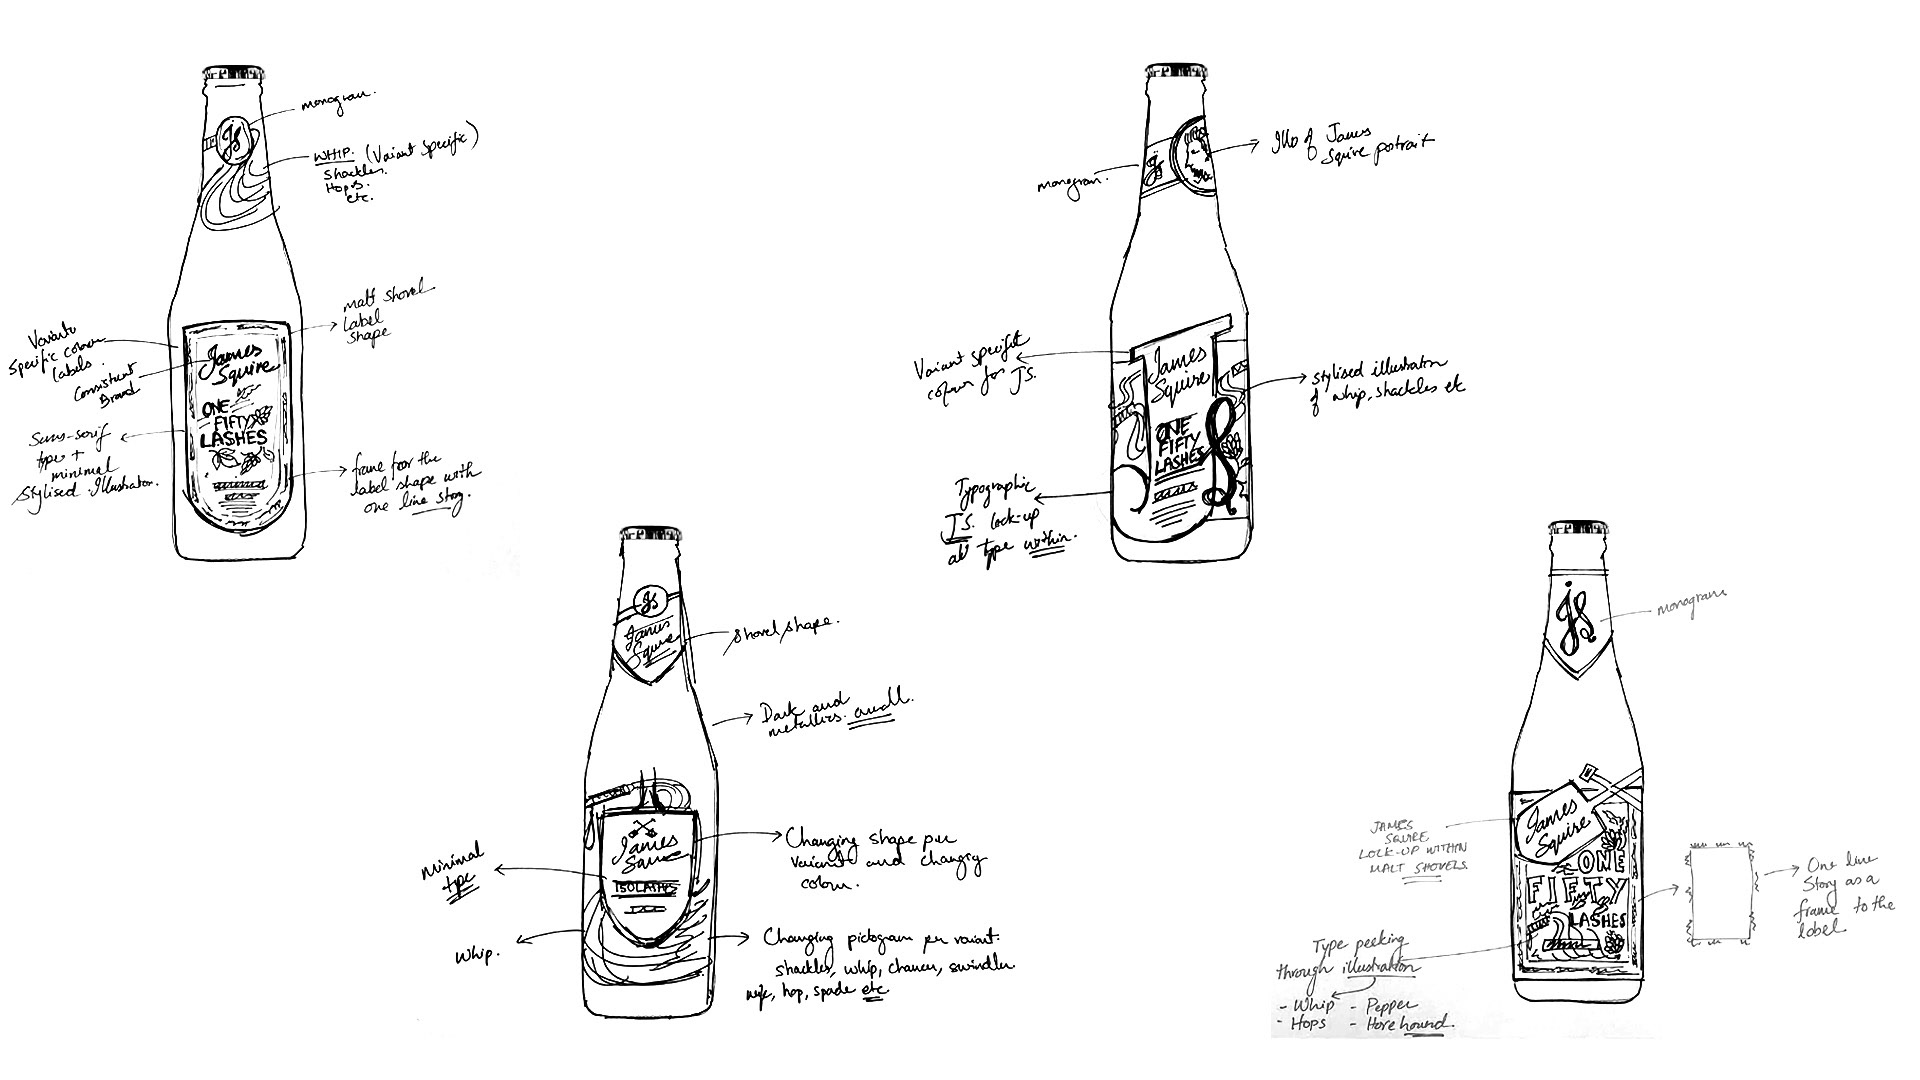 monogram.
WHIP. (Variant Specific)
Shackles.
Hops.
etc.
JS
malt shovel
label
shape
Variant
specific colour
labels.
Consistent
Brand
James
Squire
ONE
FIFTY
LASHES
Sans-serif
type +
minimal
stylised Illustration.
frame for the
label shape with
one line story.
monogram.
JS
Illo of James
Squire potrait
Variant specific
colour for JS.
James
Squire
ONE
FIFTY
LASHES
stylised illustration
of whip, shackles etc
Typographic
JS. lock-up
all type within.
JS
James
Squire
shovel shape.
Dark and
metallics. overall.
James
Squire
150 LASHES
minimal
type
Changing shape per
variant and changing
colour.
Whip.
Changing pictogram per variant.
shackles, whip, chancer, swindler
wife, hop, spade etc
JS
monogram
James
Squire
ONE
FIFTY
LASHES
JAMES
SQUIRE
LOCK-UP WITHIN
MALT SHOVELS.
One line
Story as a
frame to the
label.
Type peeking
through illustration
- Whip - Pepper
- Hops - Horehound.